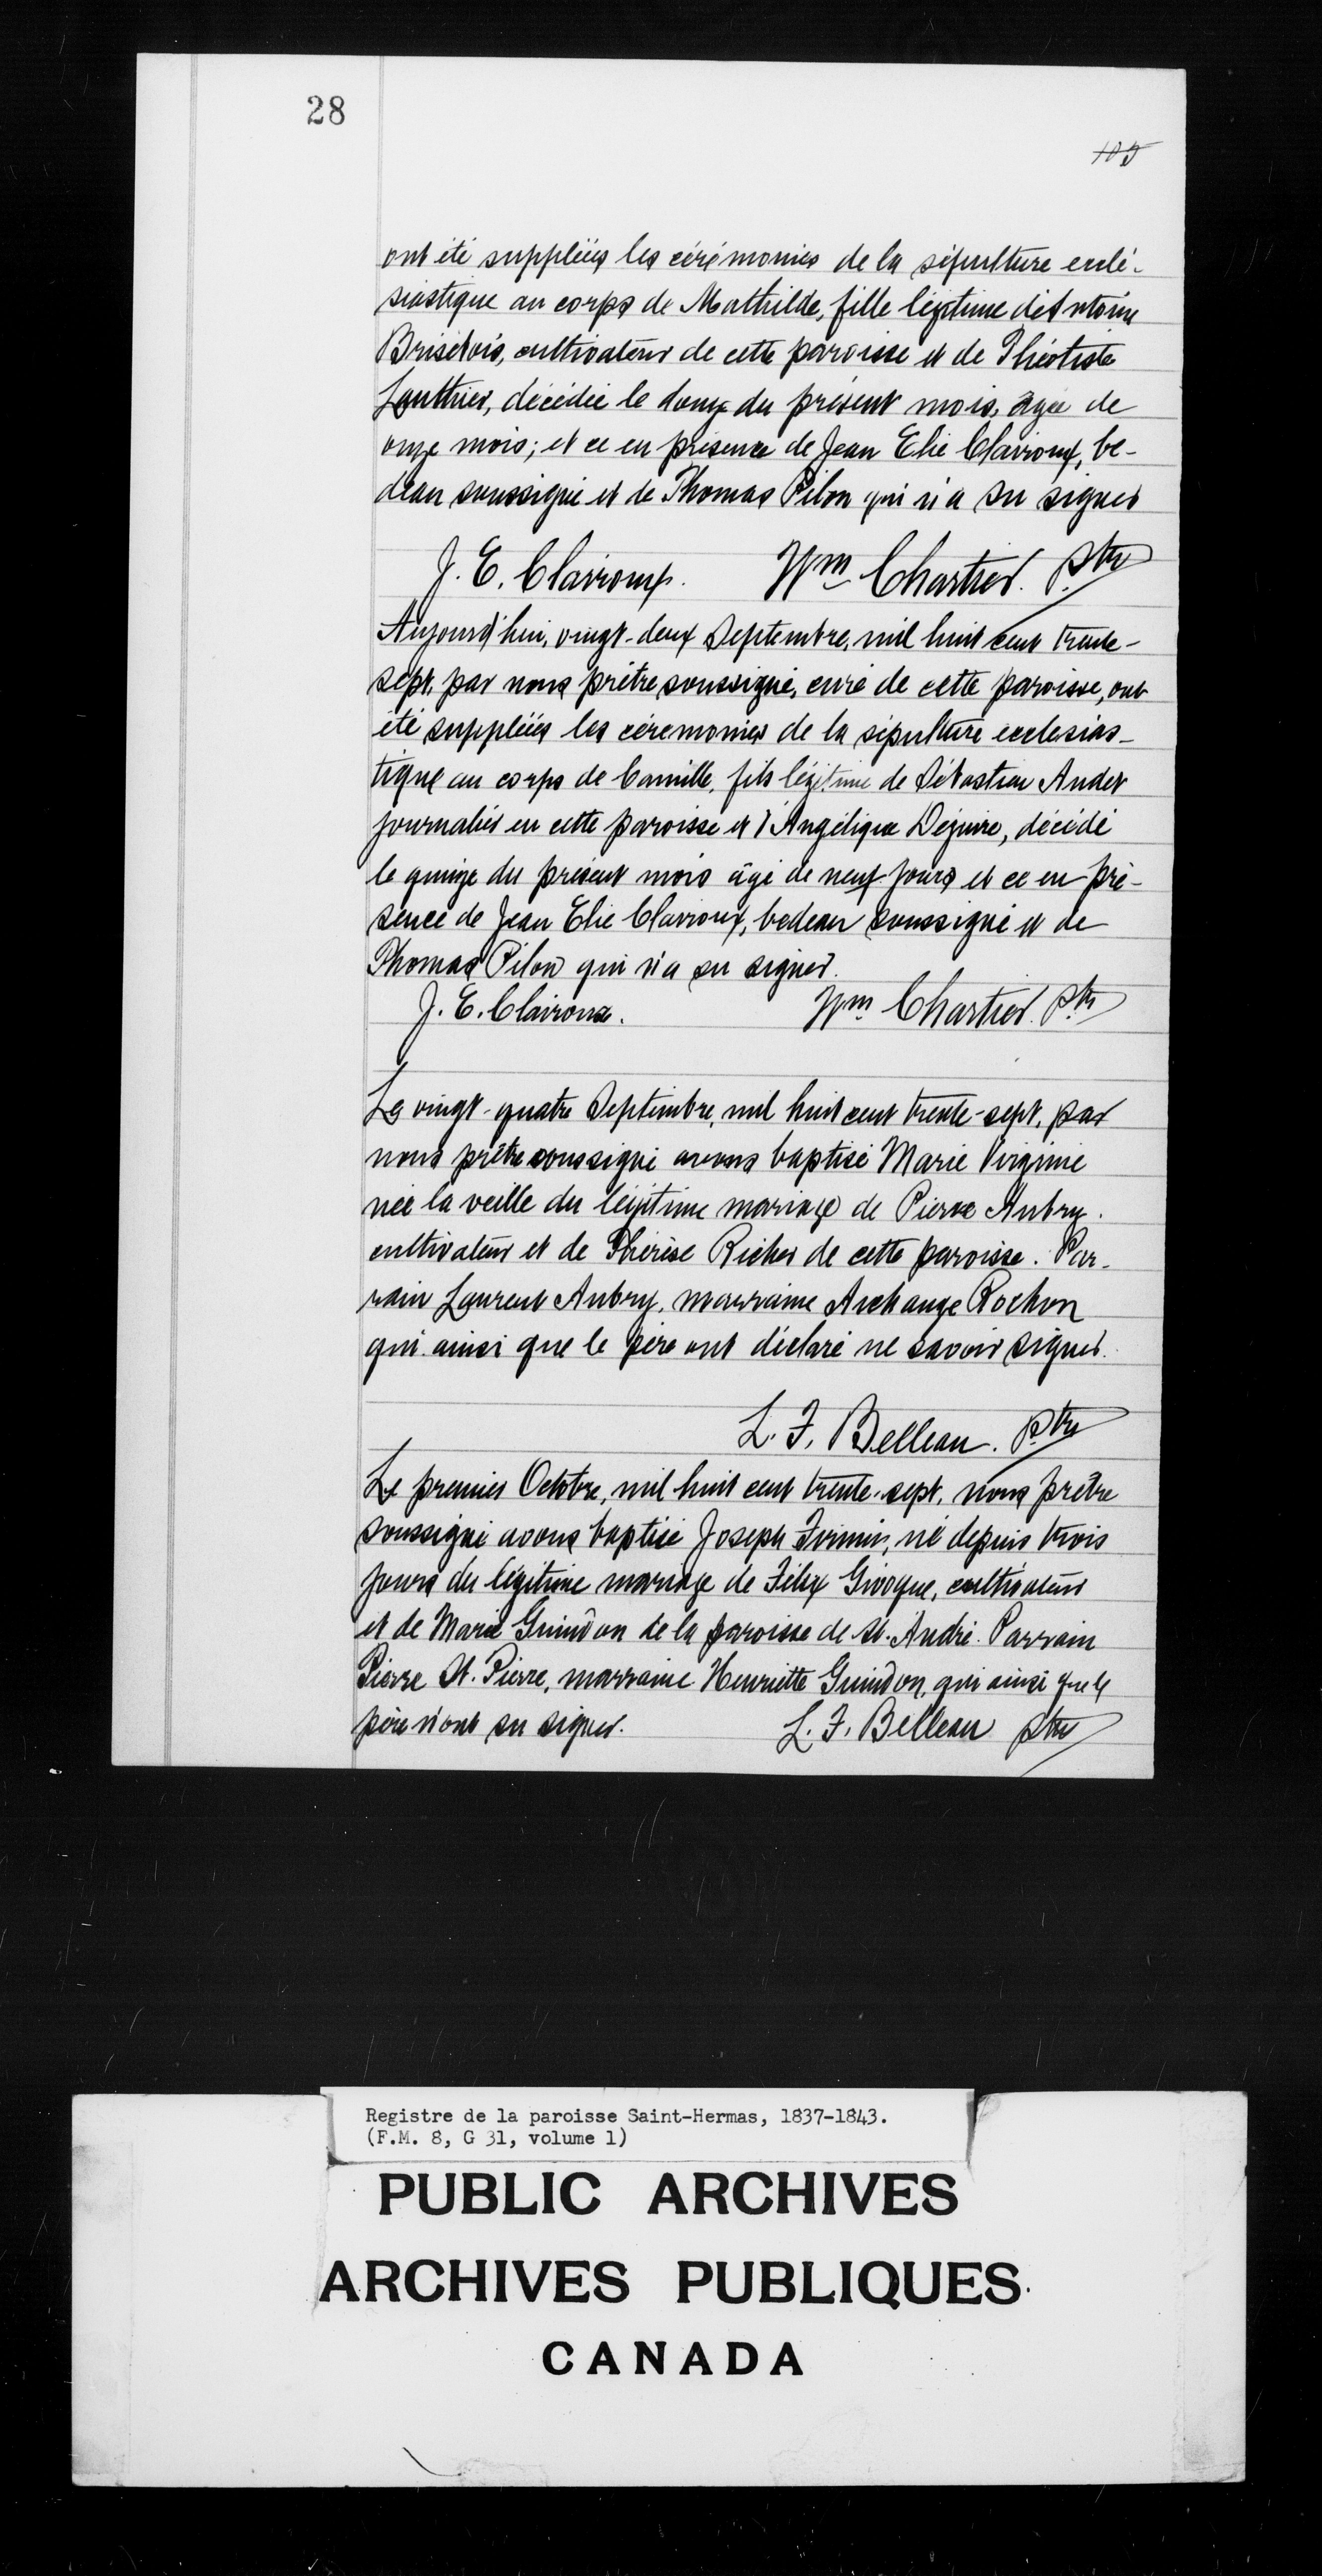 28
105
ont été suppléés les cérémonies de la sépulture ecclé-
siastique au corps de Mathilde, fille légitime d'Antoine
Brisebois, cultivateur de cette paroisse et de Théotiste
Gauthier, décédée le douze du présent mois, âgée de
onze mois; et ce en présence de Jean Elie Clairoux, be-
deau soussigné et de Thomas Pilon qui n'a su signer
J. E. Clairoux. Wm Chartier. Ptre
Aujourd'hui, vingt-deux Septembre, mil huit cent trente-
sept, par nous prêtre soussigné, curé de cette paroisse, ont
été suppléés les cérémonies de la sépulture ecclesias-
tique au corps de Camille, fils légitime de Sébastien Andet
journalier en cette paroisse et d'Angélique Dejuire, décédé
le quinze du présent mois âgé de neuf jours et ce en pré-
sence de Jean Elie Clairoux, bedeau soussigné et de
Thomas Pilon qui n'a su signer.
J. E. Clairoux. Wm Chartier. Ptr
Le vingt-quatre Septembre, mil huit cent trente-sept, par
nous prêtre soussigné avons baptisé Marie Virginie
née la veille du légitime mariage de Pierre Aubry.
cultivateur et de Thérèse Richer de cette paroisse. Par-
rain Laurent Aubry, marraine Archange Rochon
qui ainsi que le père ont déclaré ne savoir signer.
L. F. Belleau. Ptre
Le premier Octobre, mil huit cent trente-sept, nous prêtre
soussigné avons baptisé Joseph Firmin, né depuis trois
jours du légitime mariage de Félix Giroque, cultivateur
et de Marie Guindon de la paroisse de St. André. Parrain
Pierre St. Pierre, marraine Henriette Guindon, qui ainsi que le
père n'ont su signer. L. F. Belleau ptre
Registre de la paroisse Saint-Hermas, 1837-1843.
(F.M. 8, G 31, volume 1)
PUBLIC ARCHIVES
ARCHIVES PUBLIQUES
CANADA